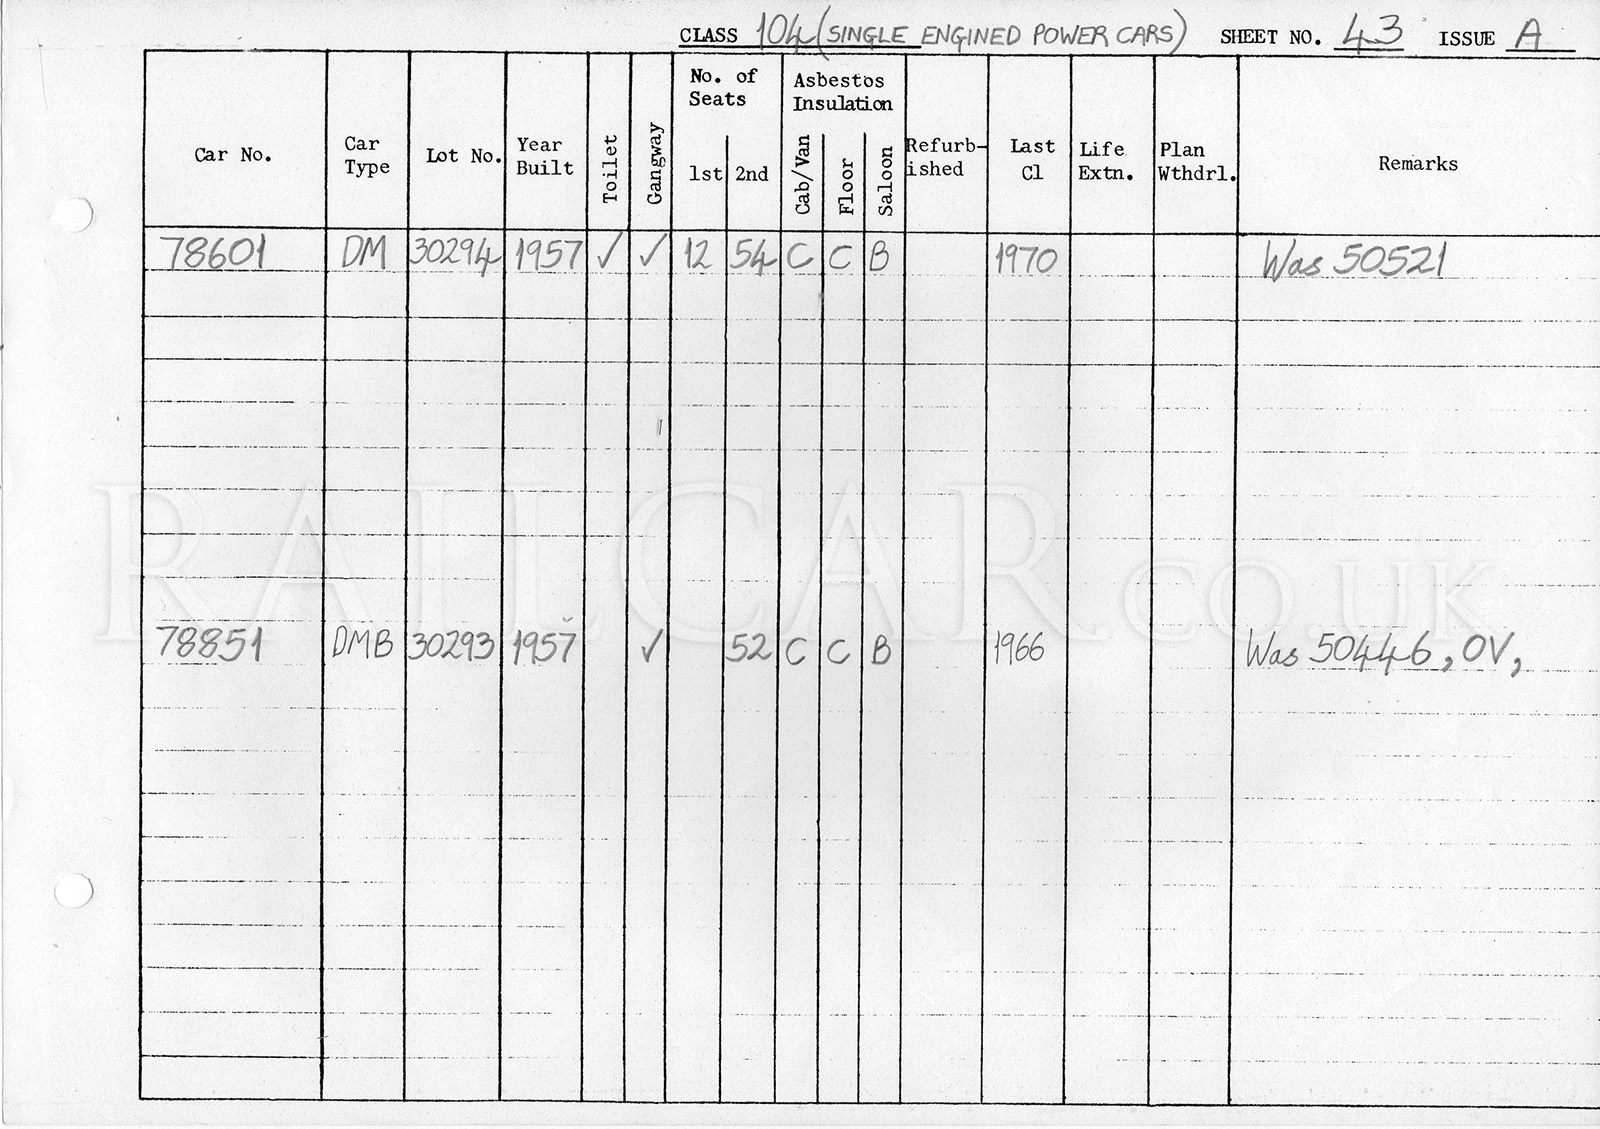 CLASS 104 (SINGLE ENGINED POWER CARS) SHEET NO. 43 ISSUE A
Car No. Car Type Lot No. Year Built Toilet Gangway No. of Seats 1st 2nd Asbestos Insulation Cab/Van Floor Saloon Refurb-ished Last Cl Life Extn. Plan Wthdrl. Remarks
78601 DM 30294 1957 ✓ ✓ 12 54 C C B 1970 Was 50521
RAILCAR.CO.UK
78851 DMB 30293 1957 ✓ 52 C C B 1966 Was 50446, OV,